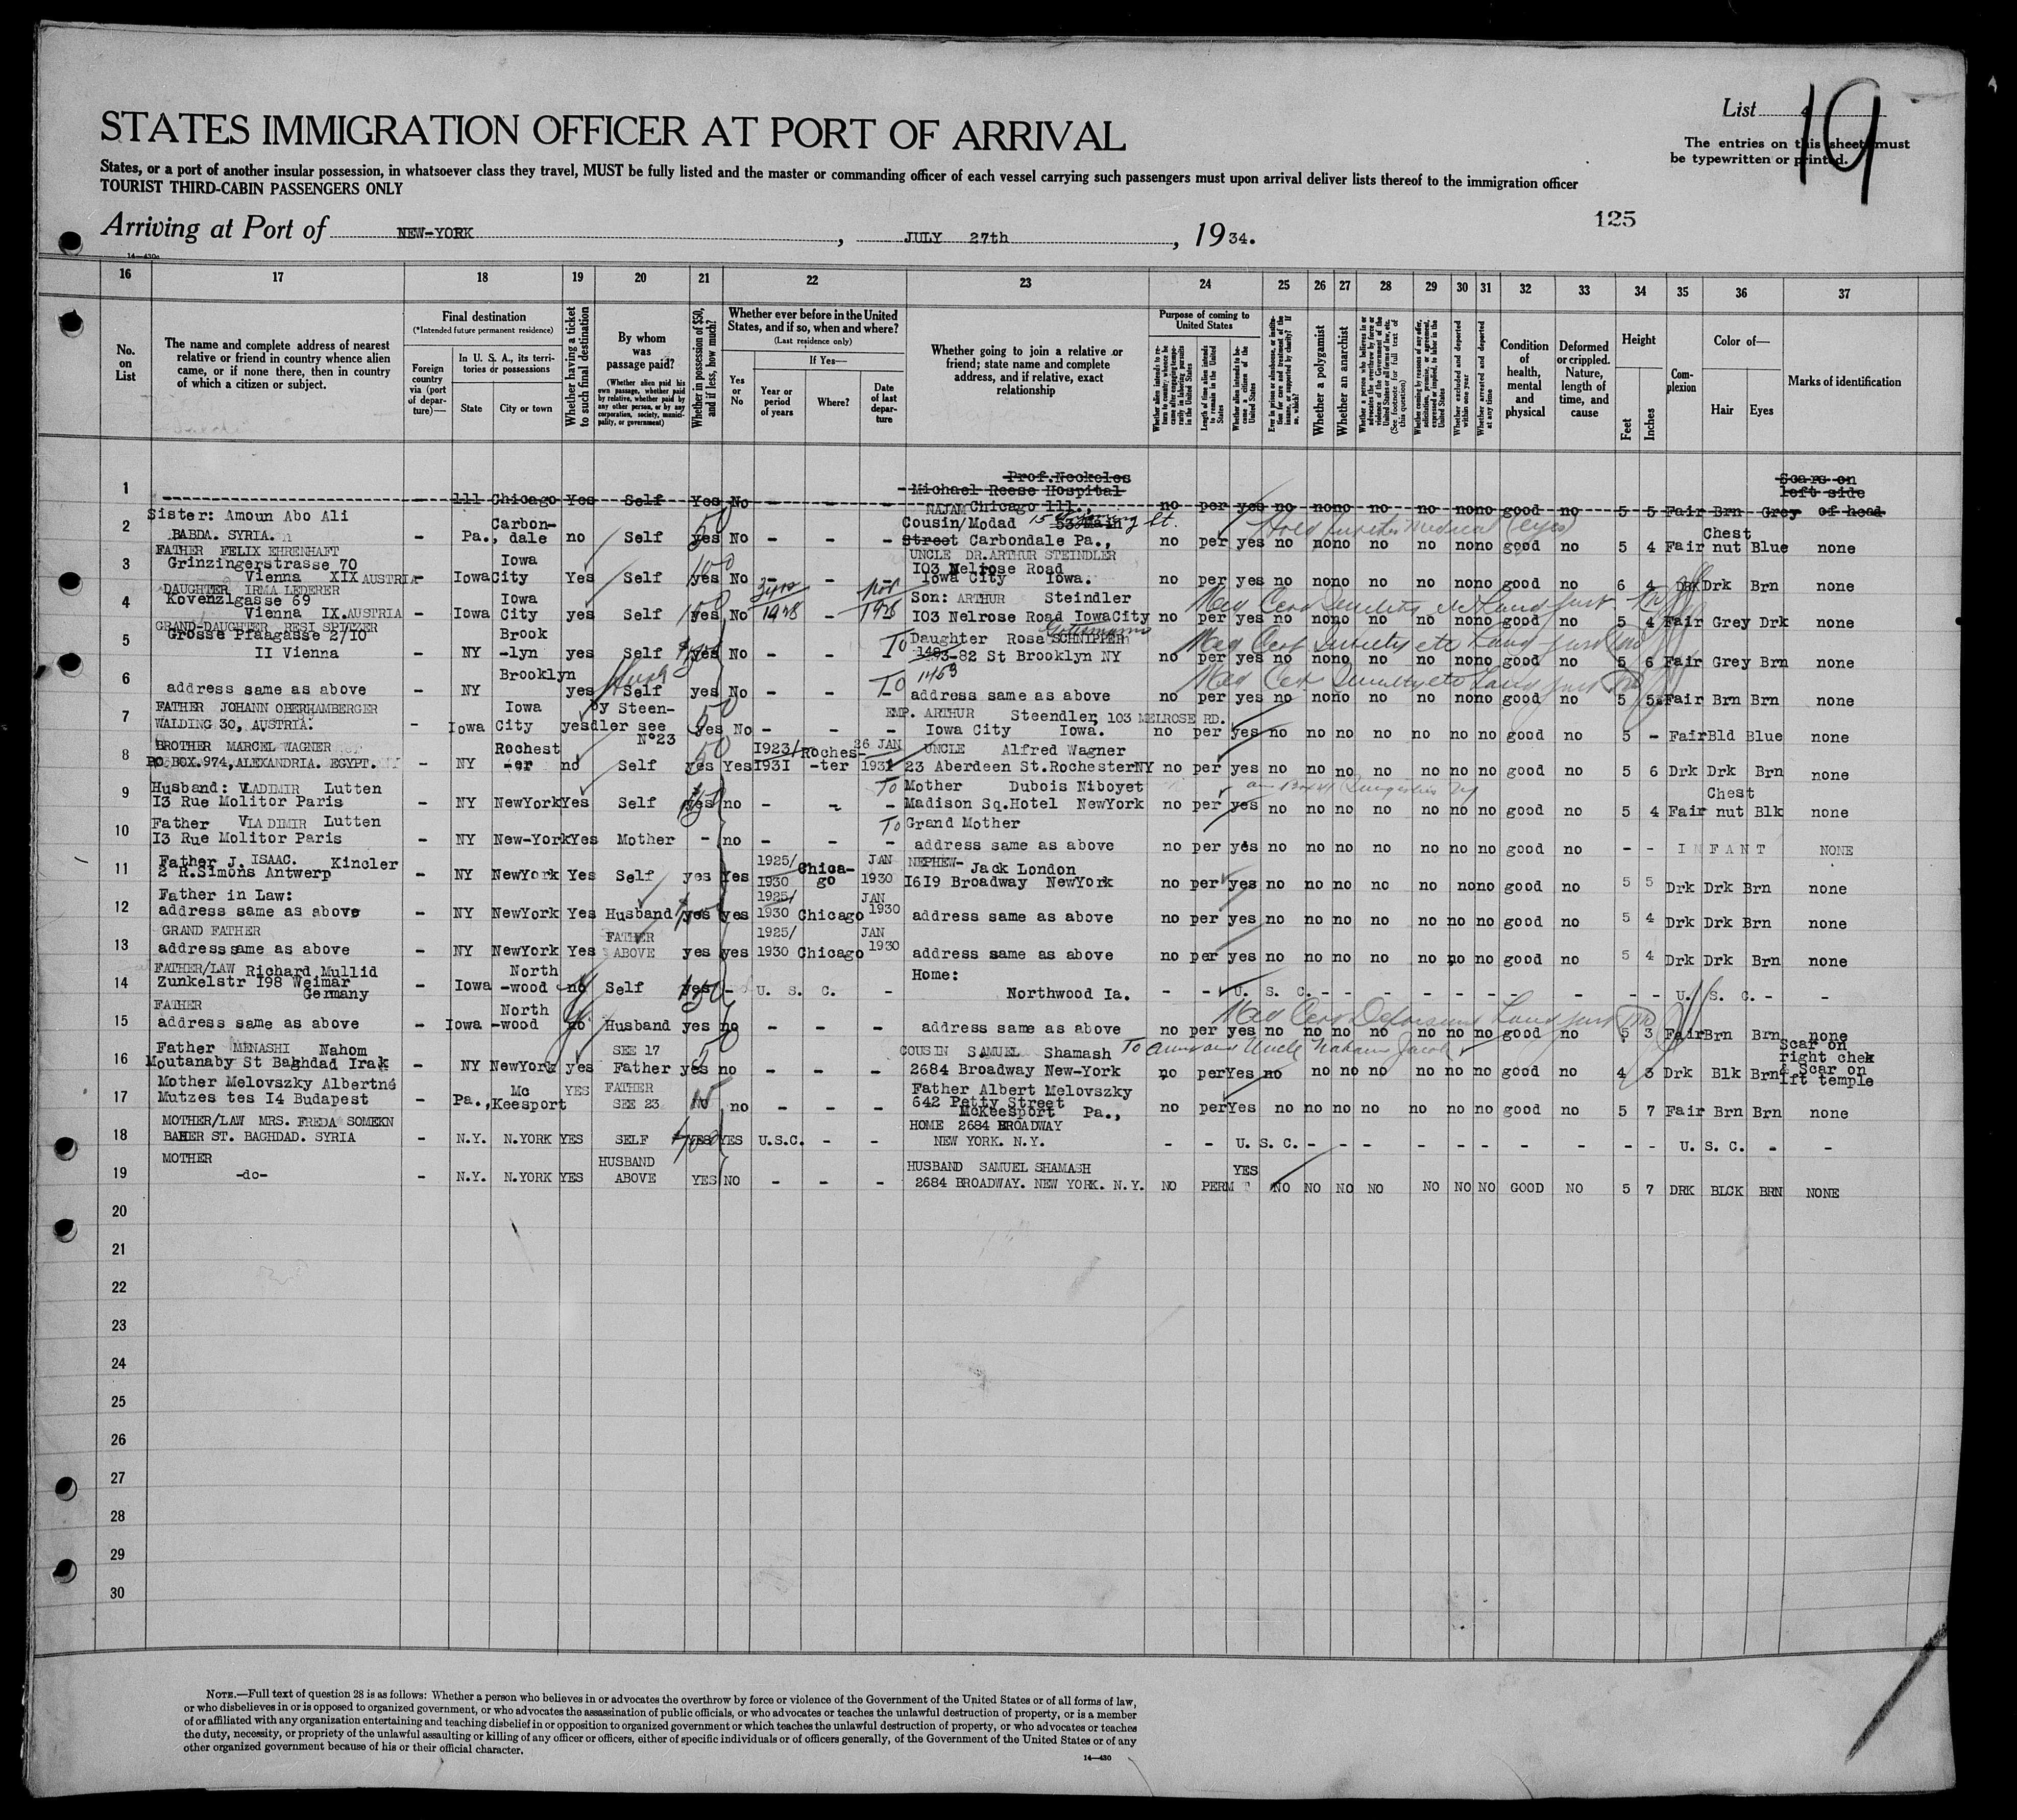 List 4
19
STATES IMMIGRATION OFFICER AT PORT OF ARRIVAL
The entries on this sheet must
be typewritten or printed.
States, or a port of another insular possession, in whatsoever class they travel, MUST be fully listed and the master or commanding officer of each vessel carrying such passengers must upon arrival deliver lists thereof to the immigration officer
TOURIST THIRD-CABIN PASSENGERS ONLY
125
Arriving at Port of NEW-YORK, JULY 27th, 1934.
14—430a
16 17 18 19 20 21 22 23 24 25 26 27 28 29 30 31 32 33 34 35 36 37
No. on List
The name and complete address of nearest relative or friend in country whence alien came, or if none there, then in country of which a citizen or subject.
Final destination
(*Intended future permanent residence)
Foreign country via (port of departure)—
In U. S. A., its territories or possessions
State
City or town
Whether having a ticket to such final destination
By whom was passage paid?
(Whether alien paid his own passage, whether paid by relative, whether paid by any other person, or by any corporation, society, municipality, or government)
Whether in possession of $50, and if less, how much?
Whether ever before in the United States, and if so, when and where?
(Last residence only)
Yes or No
If Yes—
Year or period of years
Where?
Date of last departure
Whether going to join a relative or friend; state name and complete address, and if relative, exact relationship
Purpose of coming to United States
Whether alien intends to return to country whence he came after engaging temporarily in laboring pursuits in the United States
Length of time alien intends to remain in the United States
Whether alien intends to become a citizen of the United States
Ever in prison or almshouse, or institution for care and treatment of the insane, or supported by charity? If so, which?
Whether a polygamist
Whether an anarchist
Whether a person who believes in or advocates the overthrow by force or violence of the Government of the United States or all forms of law, etc. (See footnote for full text of this question)
Whether coming by reason of any offer, solicitation, promise, or agreement, expressed or implied, to labor in the United States
Whether excluded and deported within one year
Whether arrested and deported at any time
Condition of health, mental and physical
Deformed or crippled. Nature, length of time, and cause
Height
Feet
Inches
Complexion
Color of—
Hair
Eyes
Marks of identification
1 - lll Chicago Yes Self Yes No - - - Prof.Neckeles Michael Reese Hospital Chicago lll., no per yes no no no no no no no good no 5 5 Fair Brn Grey Scars on left side of head
2 Sister: Amoun Abo Ali BABDA. SYRIA. - Pa., Carbon-dale no Self 50 yes No - - - NAJAM Cousin/Modad 15 53 Main St. Street Carbondale Pa., no per yes no no no no no no no good no 5 4 Fair Chest nut Blue none
Hold further medical (eyes)
3 FATHER FELIX EHRENHAFT Grinzingerstrasse 70 Vienna XIX AUSTRIA - Iowa Iowa City Yes Self 100 yes No - - - UNCLE DR.ARTHUR STEINDLER I03 Melrose Road Iowa City Iowa. no per yes no no no no no no no good no 6 4 Drk Brn none
4 DAUGHTER IRMA LEDERER Kovenzlgasse 69 Vienna IX.AUSTRIA - Iowa Iowa City yes Self 150 yes No 3 yrs 1928 - Nov 1928 Son: ARTHUR Steindler I03 Nelrose Road IowaCity no per yes no no no no no no no good no 5 4 Fair Grey Drk none
5 GRAND-DAUGHTER RESI SPITZER Grosse Pfaagasse 2/I0 II Vienna - NY Brook-lyn yes Self yes No - - - To Daughter Rosa SCHNIPPER 1493-82 St Brooklyn NY 1453 no per yes no no no no no no no good no 5 6 Fair Grey Brn none
6 address same as above - NY Brooklyn yes Husb Self yes No - - - To address same as above no per yes no no no no no no no good no 5 5 Fair Brn Brn none
7 FATHER JOHANN OBERHAMBERGER WALDING 30, AUSTRIA. - Iowa Iowa City yes by Steen-dler see N°23 50 yes No - - - EMP. ARTHUR Steendler, 103 MELROSE RD. Iowa City Iowa. no per yes no no no no no no no good no 5 - Fair Bld Blue none
8 BROTHER MARCEL WAGNER PO BOX.974,ALEXANDRIA. EGYPT. - NY Rochest-er no Self 50 yes Yes I923/I93I Roches-ter 26 JAN 1931 UNCLE Alfred Wagner 23 Aberdeen St.RochesterNY no per yes no no no no no no no good no 5 6 Drk Drk Brn none
9 Husband: VLADIMIR Lutten I3 Rue Molitor Paris - NY NewYork Yes Self yes no - - - To Mother Dubois Niboyet Madison Sq.Hotel NewYork no per yes no no no no no no no good no 5 4 Fair Chest nut Blk none
10 Father VLADIMIR Lutten I3 Rue Molitor Paris - NY New-York Yes Mother - no - - - To Grand Mother address same as above no per yes no no no no no no no good no - - INFANT NONE
11 Father J. ISAAC. Kincler 2 R.Simons Antwerp - NY NewYork Yes Self yes Yes 1925/1930 Chica-go JAN 1930 NEPHEW- Jack London I6I9 Broadway NewYork no per yes no no no no no no no good no 5 5 Drk Drk Brn none
12 Father in Law: address same as above - NY NewYork Yes Husband yes yes 1925/1930 Chicago JAN 1930 address same as above no per yes no no no no no no no good no 5 4 Drk Drk Brn none
13 GRAND FATHER address same as above - NY NewYork Yes FATHER ABOVE yes yes 1925/1930 Chicago JAN 1930 address same as above no per yes no no no no no no no good no 5 4 Drk Drk Brn none
14 FATHER/LAW Richard Mullid Zunkelstr I98 Weimar Germany - Iowa North-wood no Self 150 yes - U. S. C. - Home: Northwood Ia. - - U. S. C. - - - - - - - - - - U. S. C. - -
15 FATHER address same as above - Iowa North-wood no Husband yes no - - - address same as above no per yes no no no no no no no good no 5 3 Fair Brn Brn none
16 Father MENASHI Nahom Moutanaby St Baghdad Irak - NY NewYork yes SEE 17 Father 50 yes no - - - COUSIN SAMUEL Shamash 2684 Broadway New-York no per Yes no no no no no no no good no 4 3 Drk Blk Brn Scar on right chek & Scar on lft temple
17 Mother Melovszky Albertné Mutzes tes I4 Budapest - Pa., Mc Keesport YES FATHER SEE 23 15 no - - - Father Albert Melovszky 642 Petty Street McKeesport Pa., no per Yes no no no no no no no good no 5 7 Fair Brn Brn none
18 MOTHER/LAW MRS. FREDA SOMEKN BAHER ST. BAGHDAD. SYRIA - N.Y. N.YORK YES SELF YES YES U.S.C. - - HOME 2684 BROADWAY NEW YORK. N.Y. - - U. S. C. - - - - - - - - - - U. S. C. - -
19 MOTHER -do- - N.Y. N.YORK YES HUSBAND ABOVE YES NO - - - HUSBAND SAMUEL SHAMASH 2684 BROADWAY. NEW YORK. N.Y. NO PERMT YES NO NO NO NO NO NO NO GOOD NO 5 7 DRK BLCK BRN NONE
20
21
22
23
24
25
26
27
28
29
30
NOTE.—Full text of question 28 is as follows: Whether a person who believes in or advocates the overthrow by force or violence of the Government of the United States or of all forms of law,
or who disbelieves in or is opposed to organized government, or who advocates the assassination of public officials, or who advocates or teaches the unlawful destruction of property, or is a member
of or affiliated with any organization entertaining and teaching disbelief in or opposition to organized government or which teaches the unlawful destruction of property, or who advocates or teaches
the duty, necessity, or propriety of the unlawful assaulting or killing of any officer or officers, either of specific individuals or of officers generally, of the Government of the United States or of any
other organized government because of his or their official character.
14—430